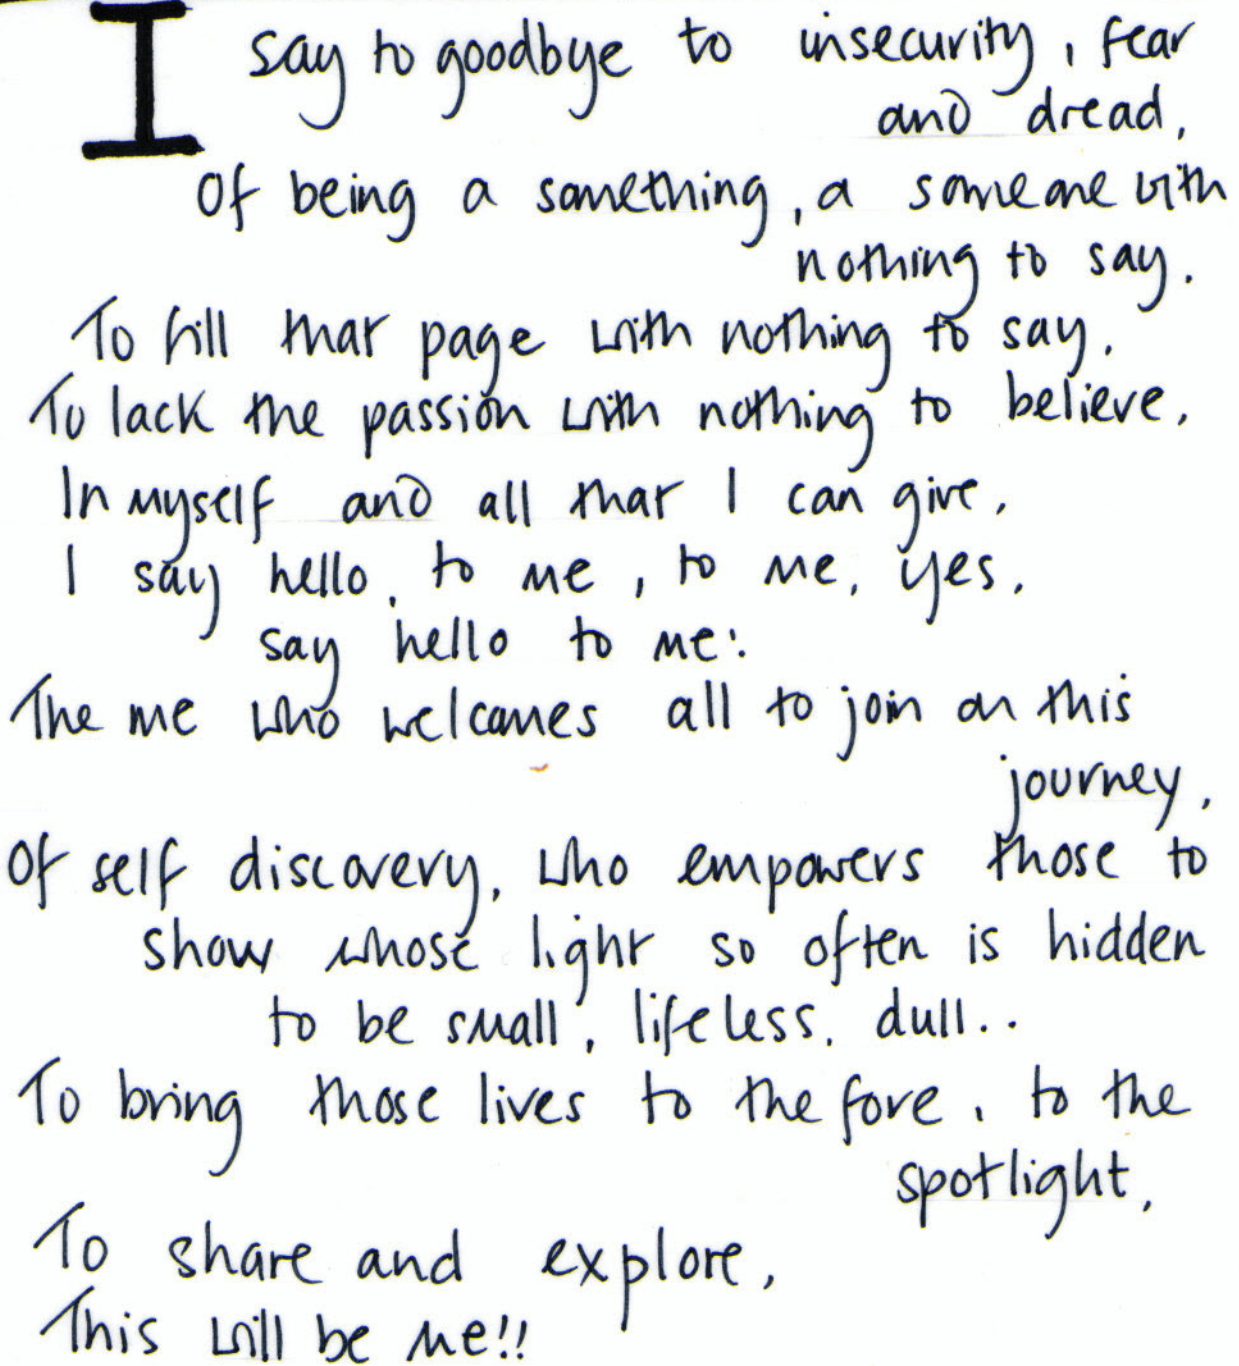 I say to goodbye to insecurity, fear
and dread,
Of being a something, a someone with
nothing to say.
To fill that page with nothing to say.
To lack the passion with nothing to believe,
In myself and all that I can give,
I say hello, to me, to me, yes,
say hello to me:
The me who welcomes all to join on this
journey,
Of self discovery, who empowers those to
show whose light so often is hidden
to be small, lifeless, dull..
To bring those lives to the fore, to the
spotlight,
To share and explore,
This will be me!!